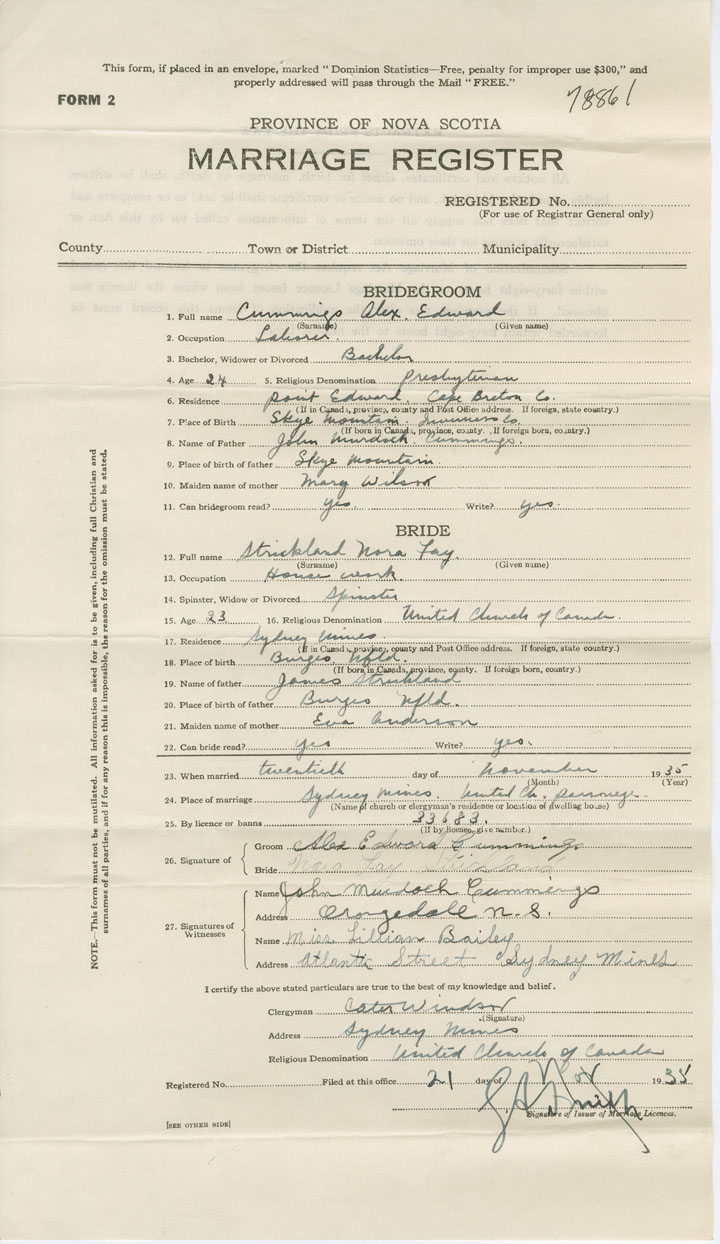 This form, if placed in an envelope, marked “Dominion Statistics—Free, penalty for improper use $300,” and
properly addressed will pass through the Mail “FREE.”
FORM 2
78861
PROVINCE OF NOVA SCOTIA
MARRIAGE REGISTER
REGISTERED No.
(For use of Registrar General only)
County Town or District Municipality
BRIDEGROOM
1. Full name Cummings Alex. Edward
(Surname) (Given name)
2. Occupation Laborer.
3. Bachelor, Widower or Divorced Bachelor
4. Age 24 5. Religious Denomination Presbyterian
6. Residence point Edward Cape Breton Co.
(If in Canada, province, county and Post Office address. If foreign, state country.)
7. Place of Birth Skye Mountain. Inverness Co.
(If born in Canada, province, county. If foreign born, country.)
8. Name of Father John Murdock Cummings.
9. Place of birth of father Skye Mountain.
10. Maiden name of mother Mary Wilson
11. Can bridegroom read? yes. Write? yes.
BRIDE
12. Full name Strickland Nora Fay.
(Surname) (Given name)
13. Occupation House work.
14. Spinster, Widow or Divorced Spinster
15. Age 23 16. Religious Denomination United Church of Canada.
17. Residence Sydney Mines.
(If in Canada, province, county and Post Office address. If foreign, state country.)
18. Place of birth Burges Nfld.
(If born in Canada, province, county. If foreign born, country.)
19. Name of father James Strickland
20. Place of birth of father Burges Nfld.
21. Maiden name of mother Eva Anderson
22. Can bride read? yes Write? yes.
23. When married twentieth day of November 1935
(Month) (Year)
24. Place of marriage Sydney Mines. United Ch. parsonage.
(Name of church or clergyman's residence or location of dwelling house)
25. By licence or banns 33683.
(If by licence, give number.)
26. Signature of Groom Alex Edward Cummings
Bride Nora Fay Strickland
27. Signatures of Witnesses Name John Murdoch Cummings
Address Orangedale N.S.
Name Miss Lillian Bailey
Address Atlantic Street Sydney Mines
I certify the above stated particulars are true to the best of my knowledge and belief.
Clergyman Cater Windsor
(Signature)
Address Sydney Mines
Religious Denomination United Church of Canada
Registered No. Filed at this office 21 day of Nov 1935
Smith
Signature of Issuer of Marriage Licences.
[SEE OTHER SIDE]
NOTE.—This form must not be mutilated. All information asked for is to be given, including full Christian and
surnames of all parties, and if for any reason this is impossible, the reason for the omission must be stated.